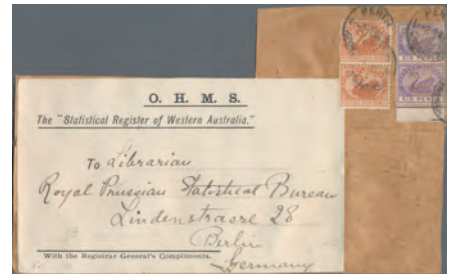 O. H. M. S.
The "Statistical Register of Western Australia."
To Librarian
Royal Prussian Statistical Bureau
Lindenstrasse 28
Berlin
Germany
With the Registrar General's Compliments.
PERTH
SIX PENCE
SIX PENCE